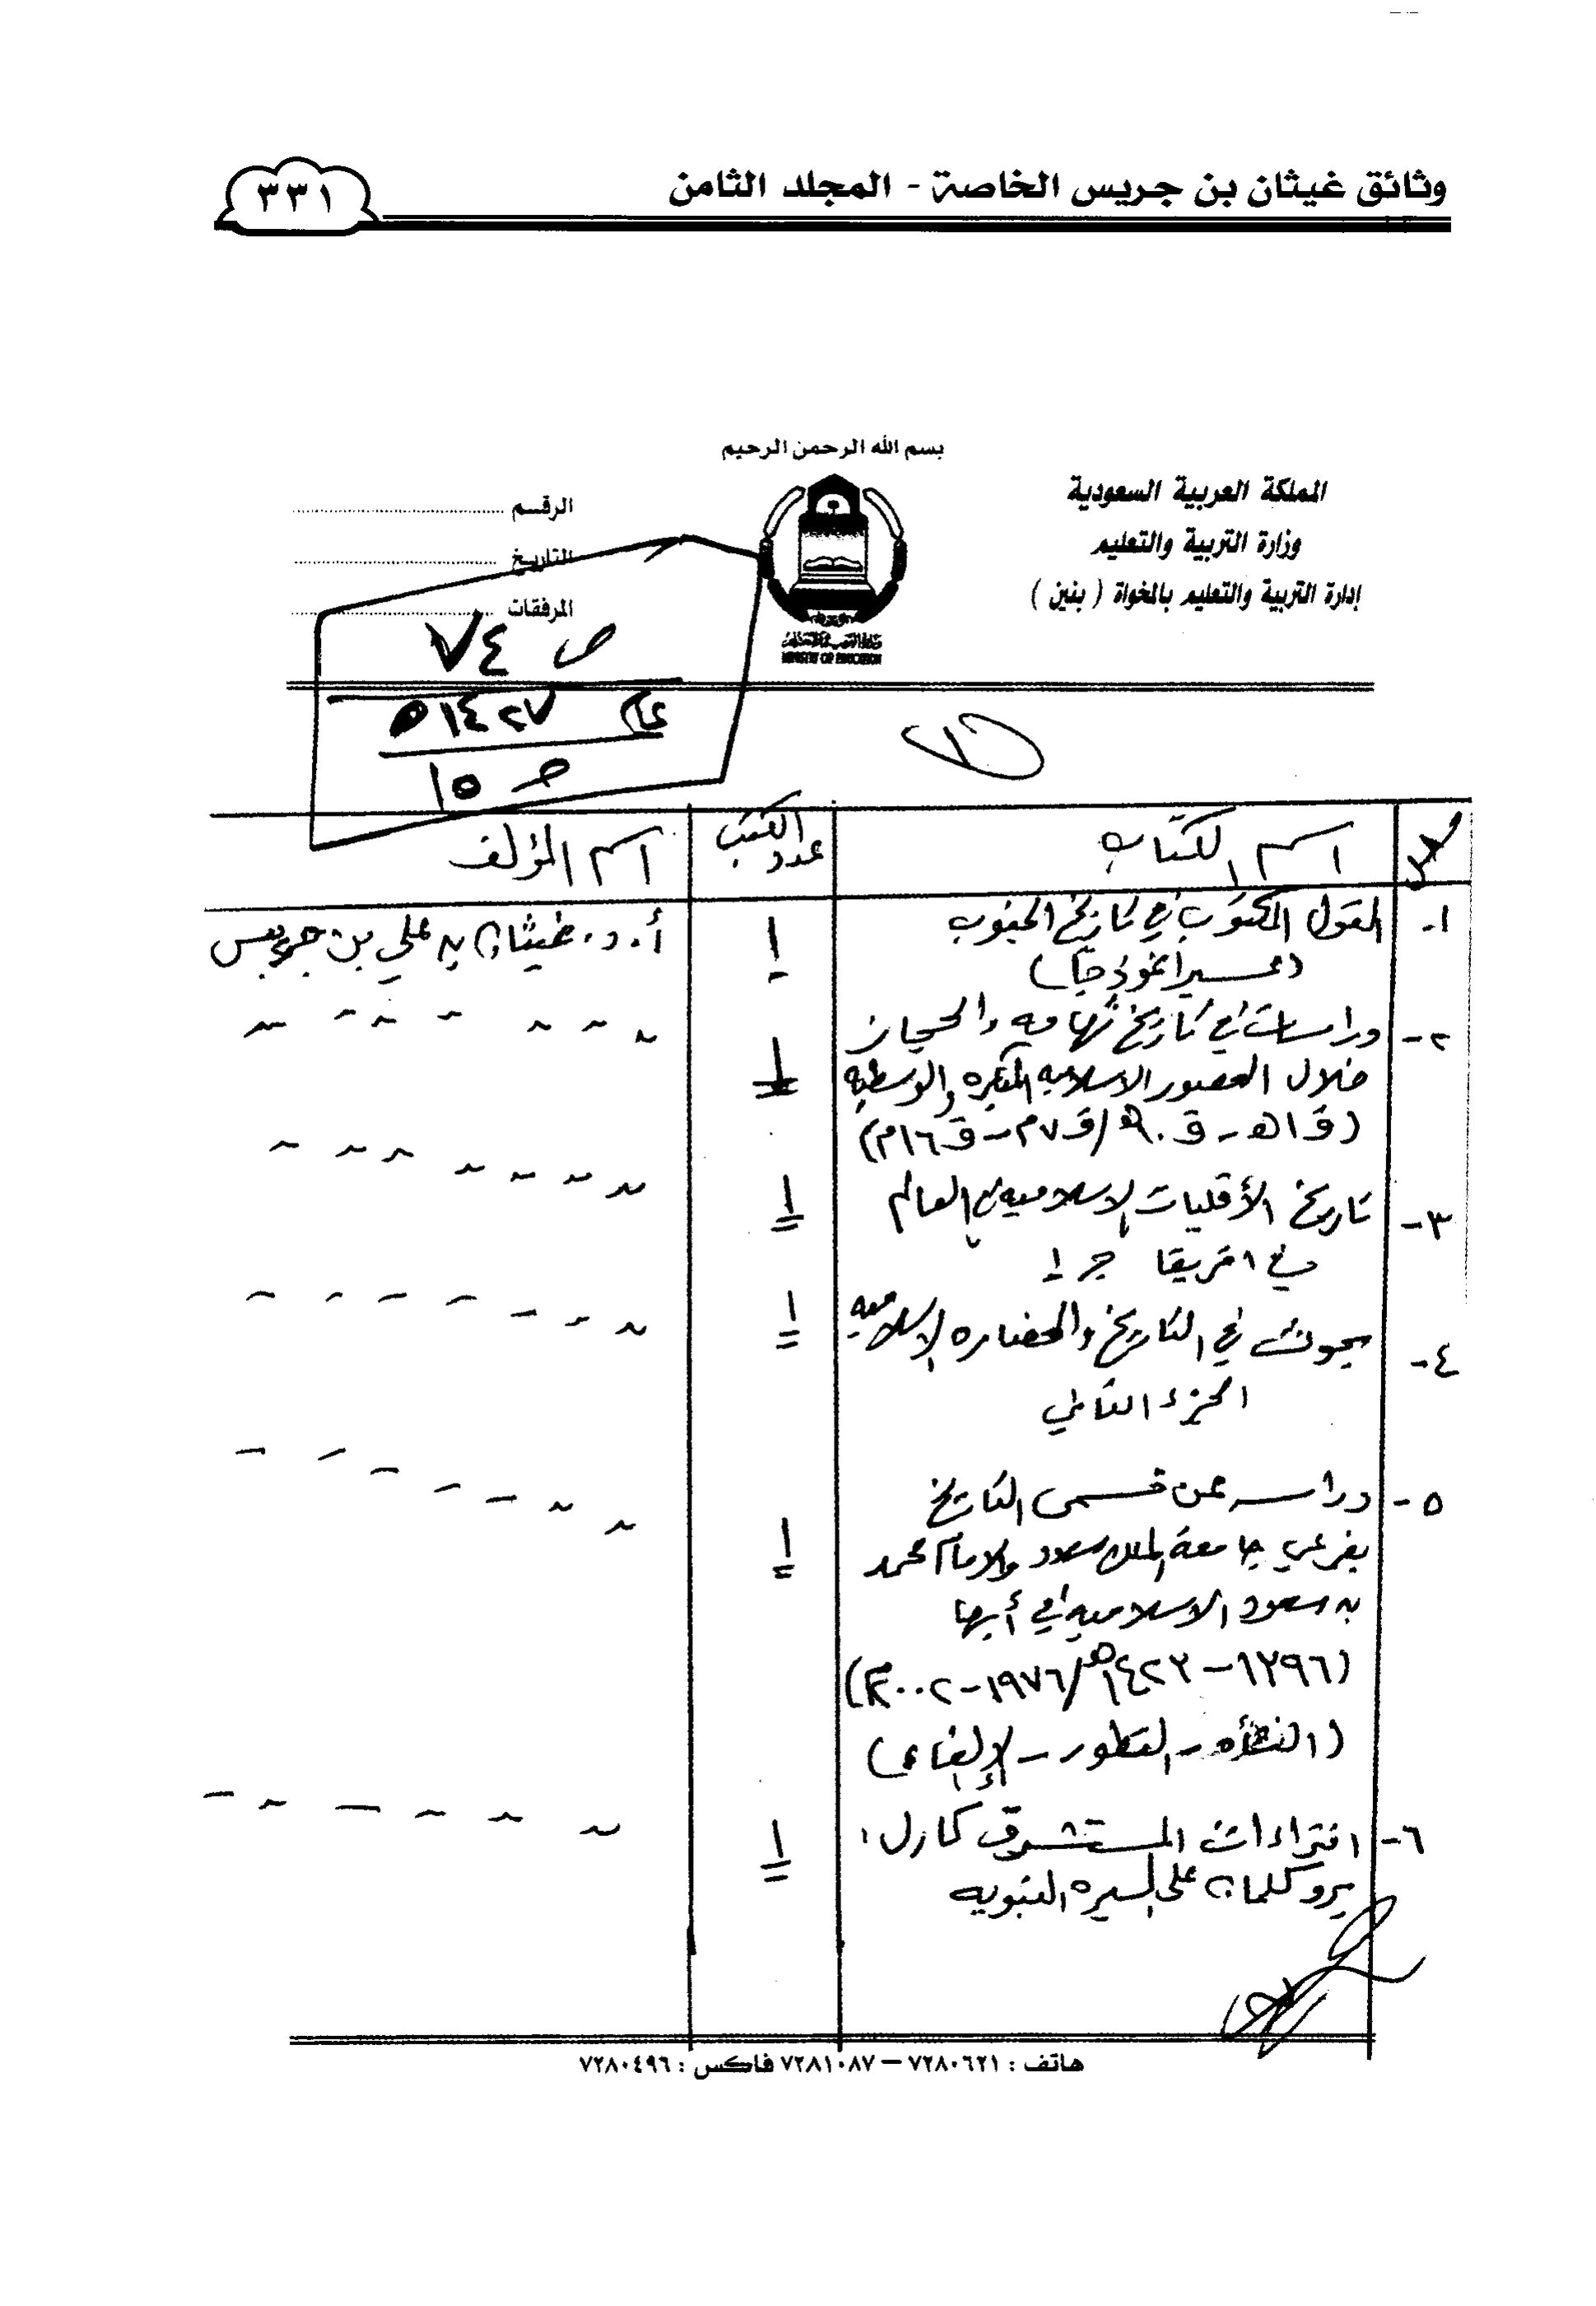 وثائق غيثان بن جريس الخاصة - المجلد الثامن
٣٣١
بسم الله الرحمن الرحيم
المملكة العربية السعودية
وزارة التربية والتعليم
إدارة التربية والتعليم بالمخواة ( بنين )
الرقم
التاريخ
المرفقات
MINISTRY OF EDUCATION
ص ٧٤
عام ١٤٢٧هـ
ص ١٥
١
اسم الكتاب
عدد الكتب
اسم المؤلف
١- القول المكتوب في تاريخ الجنوب
(عسير أنموذجاً)
١
أ. د. غيثان بن علي بن جريس
٢- دراسات في تاريخ تهامه والحجاز
خلال العصور الاسلاميه المبكره والوسطيه
(ق١هـ - ق١٠هـ/ق٧م - ق١٦م)
١
٣- تاريخ الأقليات الإسلاميه في العالم
في افريقا جـ ١
١
٤- بحوث في التاريخ والحضاره الإسلاميه
الجزء الثاني
١
٥- دراسه عن قسمي التاريخ
بفرعي جامعة الملك سعود والإمام محمد
بن سعود الاسلاميه في أبها
(١٣٩٦-١٤٢٣هـ/١٩٧٦-٢٠٠٢م)
(النشأه - التطور - الإلغاء)
١
٦- افتراءات المستشرق كارل
بروكلمان على السيره النبويه
١
هاتف : ٧٢٨٠٦٢١ – ٧٢٨١٠٨٧ فاكس : ٧٢٨٠٤٩٦